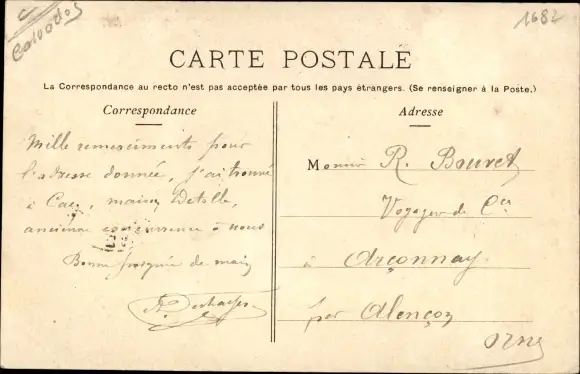 Calvados
1682
CARTE POSTALE
La Correspondance au recto n'est pas acceptée par tous les pays étrangers. (Se renseigner à la Poste.)
Correspondance
Mille remerciments pour
l'adresse donnée, j'ai trouvé
à Caen, maison Detolle,
ancienne concurrence à nous
Bonne poignée de main
Adresse
Monsieur R. Bouvet
Voyageur de Cce
à Arçonnay
par Alençon
Orne